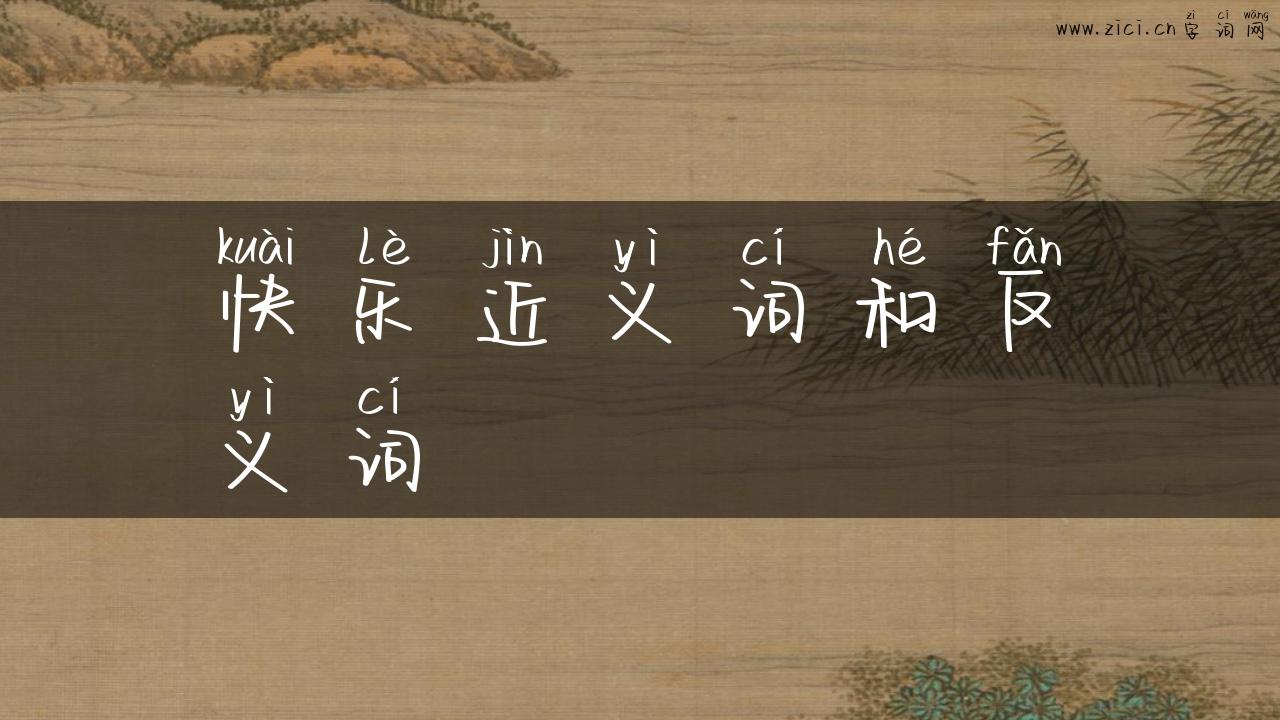 zì cí wǎng
www.zici.cn 字词网
kuài lè jìn yì cí hé fǎn
快乐近义词和反
yì cí
义词